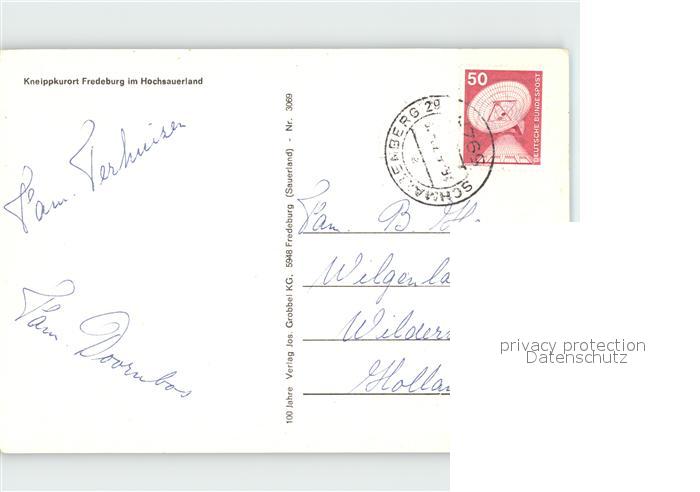 Kneippkurort Fredeburg im Hochsauerland
Fam. Terhuizen
Fam. Doornbos
100 Jahre Verlag Jos. Grobbel KG. 5948 Fredeburg (Sauerland) - Nr. 3069
SCHMALLENBERG
50
DEUTSCHE BUNDESPOST
Fam. B. H.
Wilgenla
Wilders
Hollan
privacy protection
Datenschutz